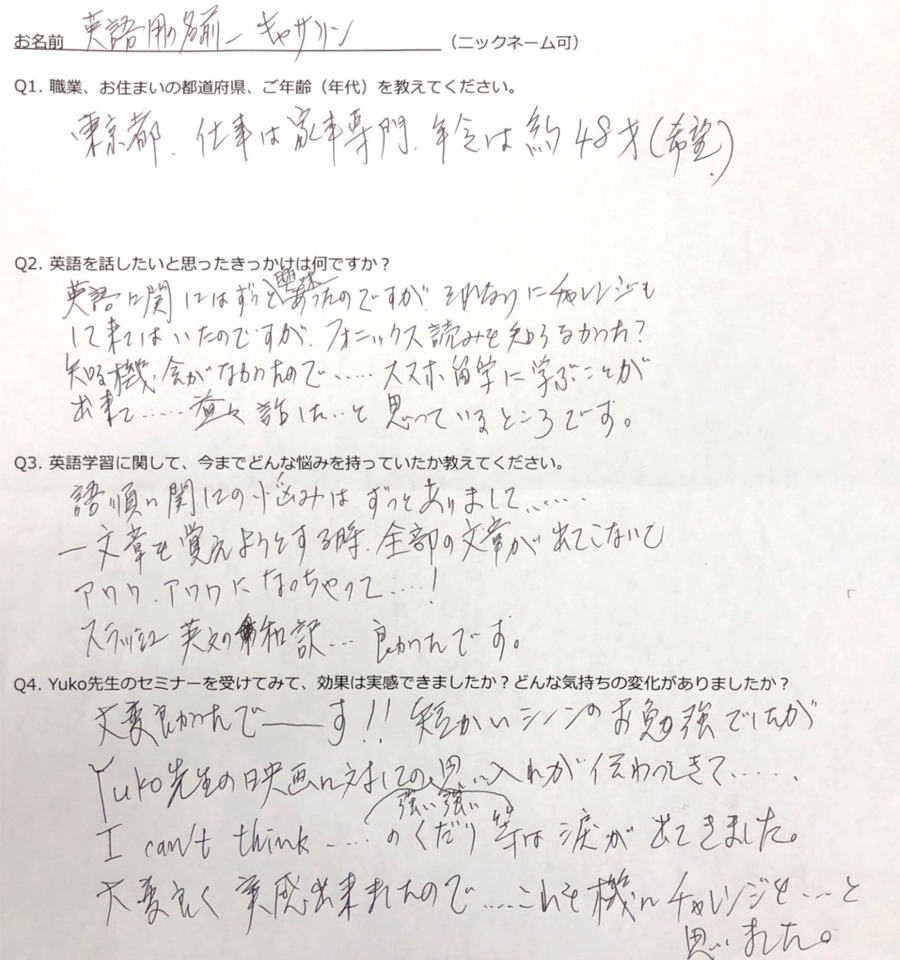 お名前 英語用の名前－キャサリン （ニックネーム可）
Q1. 職業、お住まいの都道府県、ご年齢（年代）を教えてください。
東京都、仕事は家事専門、年令は約48才(希望)
Q2. 英語を話したいと思ったきっかけは何ですか？
興味
英語に関してはずっとあったのですが、それなりにチャレンジも
して来てはいたのですが、フォニックス読みを知らなかった？
知る機会がなかったので……スマホ留学に学ぶことが
出来て……益々話したいと思っているところです。
Q3. 英語学習に関して、今までどんな悩みを持っていたか教えてください。
語順に関しての悩みはずっとありまして……
一文章を覚えようとする時、全部の文章が出てこないで
アワワ、アワワになっちゃって……！
スラッシュ英文の和訳…良かったです。
Q4. Yuko先生のセミナーを受けてみて、効果は実感できましたか？どんな気持ちの変化がありましたか？
大変良かったで――す!! 短かいシーンのお勉強でしたが
Yuko先生の映画に対しての思い入れが伝わってきて……
強い強い
I can't think ……のくだり等は涙が出てきました。
大変良く実感出来ましたので……これを機にチャレンジを…と
思いました。